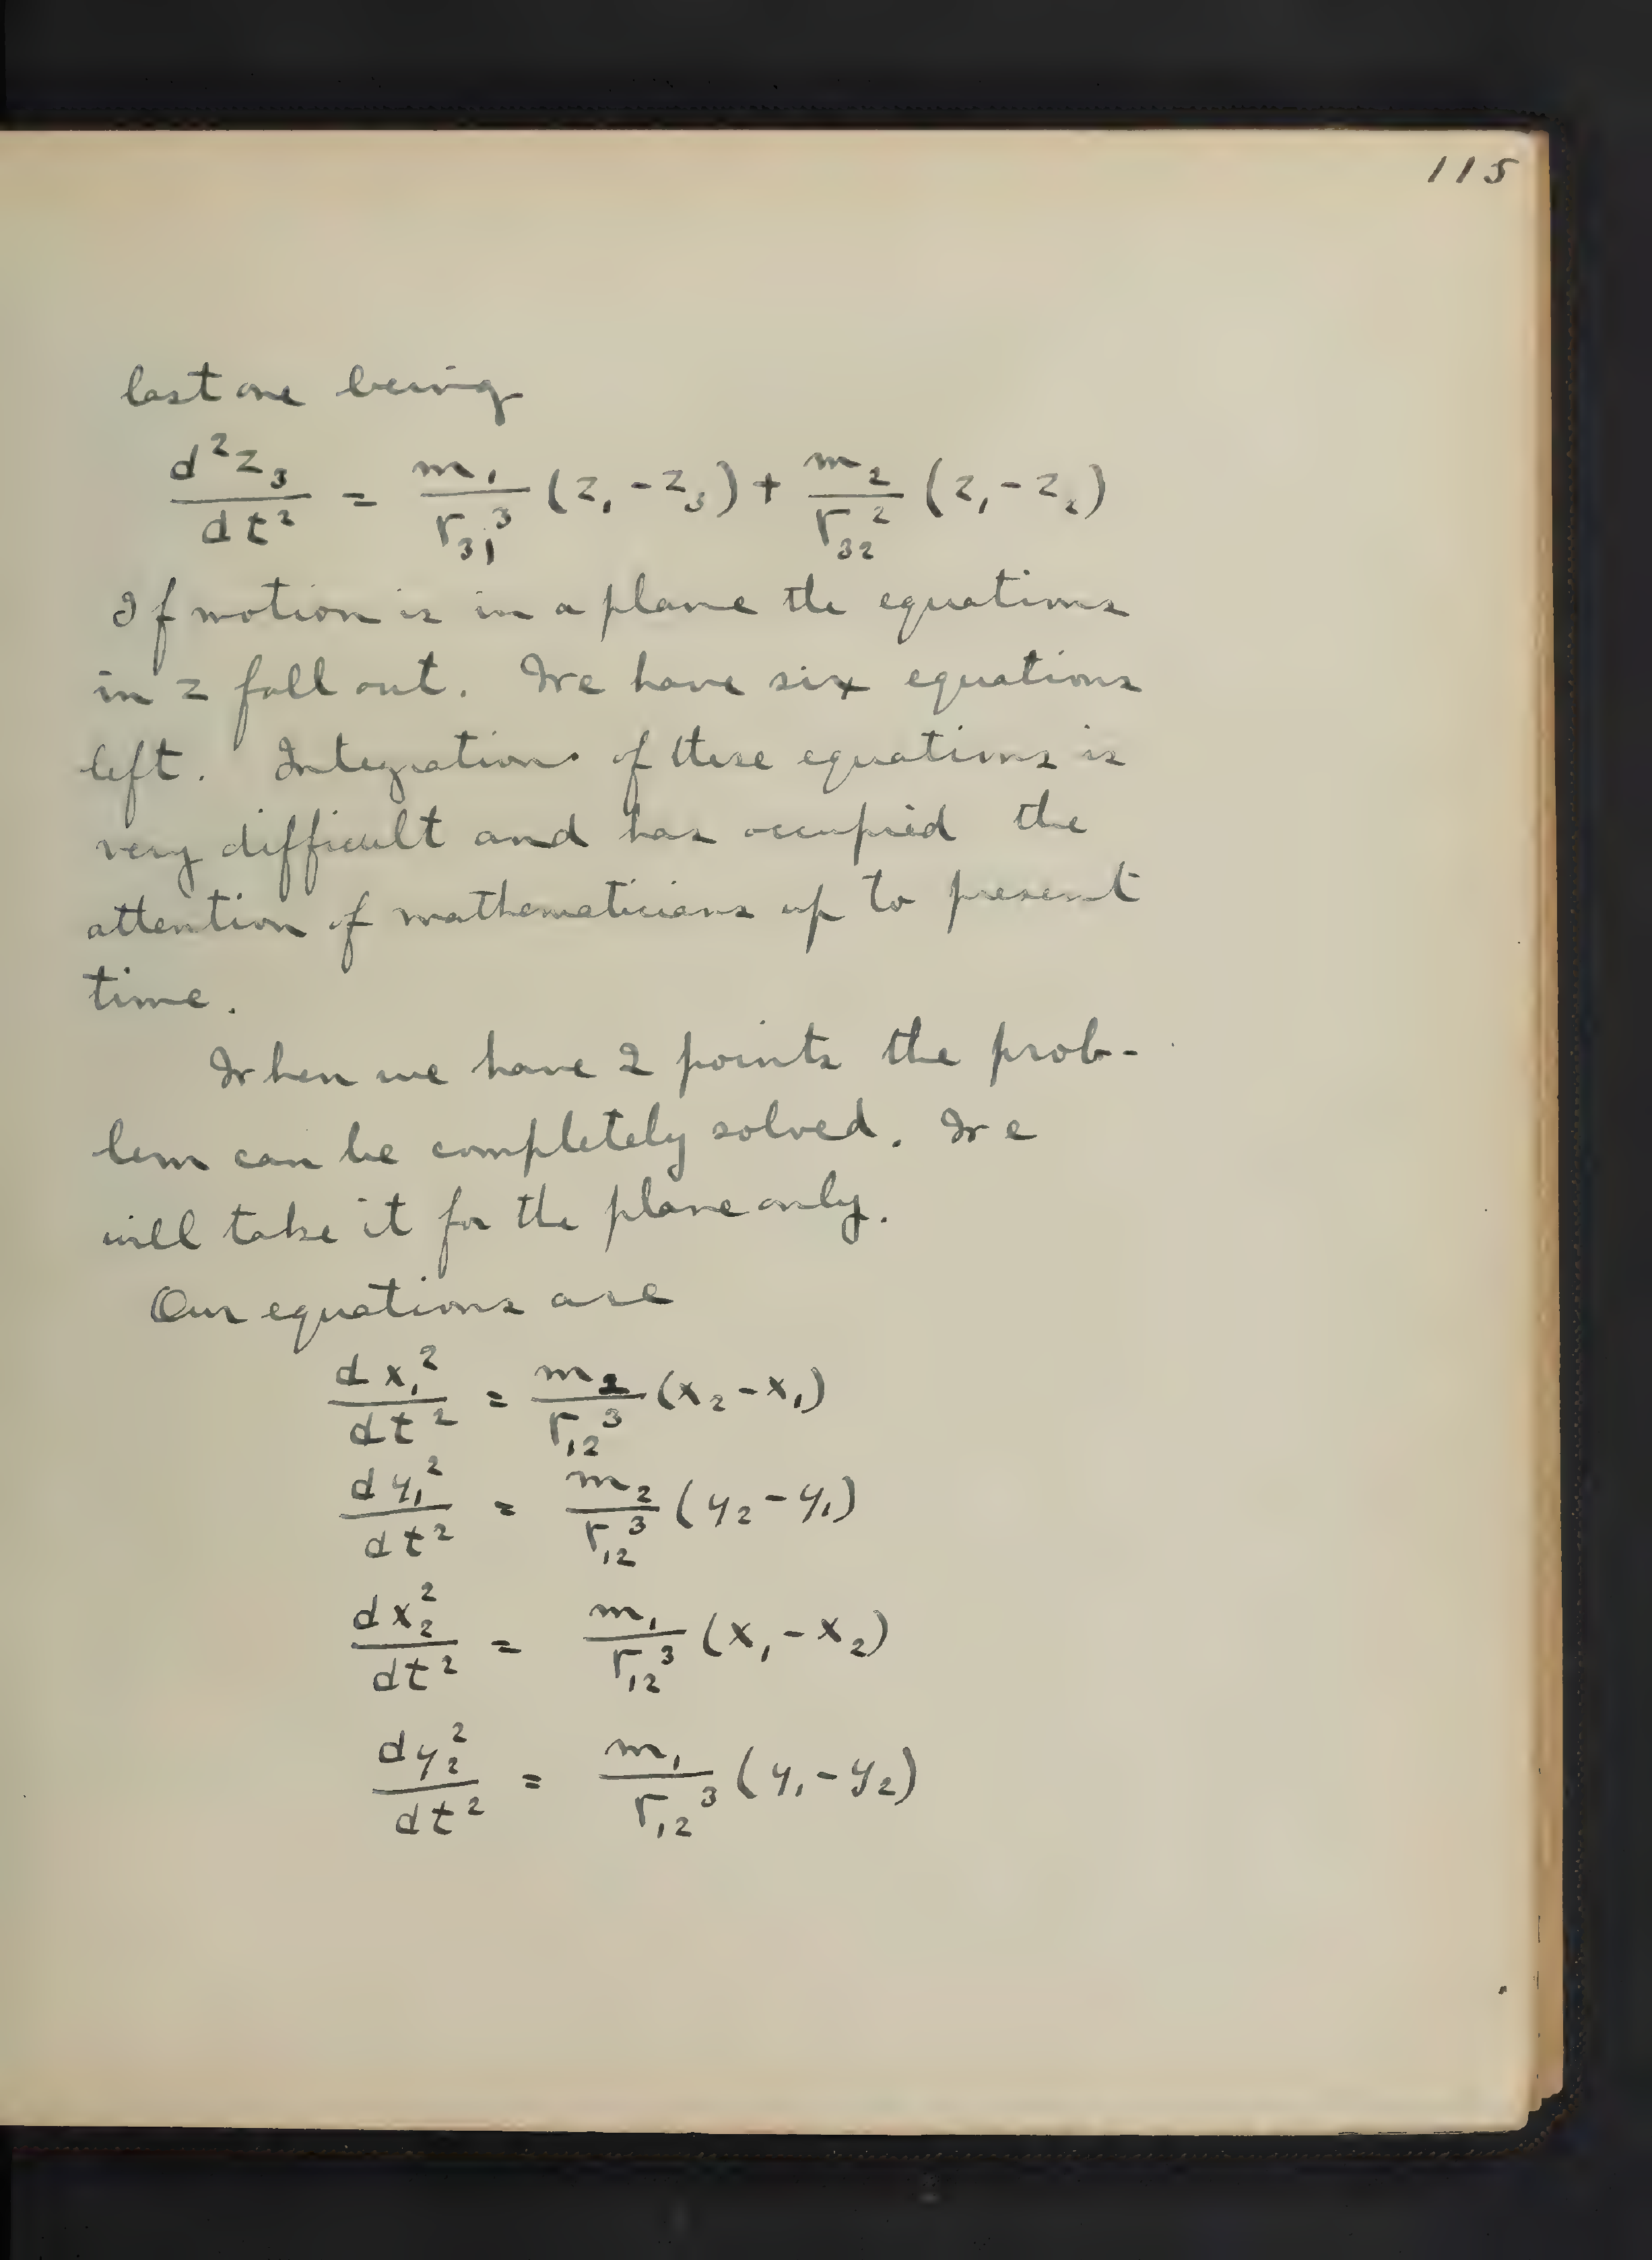 115
last one being
d²z₃/dt² = m₁/r₃₁³ (z₁ - z₃) + m₂/r₃₂² (z₁ - z₂)
If motion is in a plane the equations
in z fall out. We have six equations
left. Integration of these equations is
very difficult and has occupied the
attention of mathematicians up to present
time.
When we have 2 points the prob-
lem can be completely solved. We
will take it for the plane only.
Our equations are
dx₁²/dt² = m₂/r₁₂³ (x₂ - x₁)
dy₁²/dt² = m₂/r₁₂³ (y₂ - y₁)
dx₂²/dt² = m₁/r₁₂³ (x₁ - x₂)
dy₂²/dt² = m₁/r₁₂³ (y₁ - y₂)